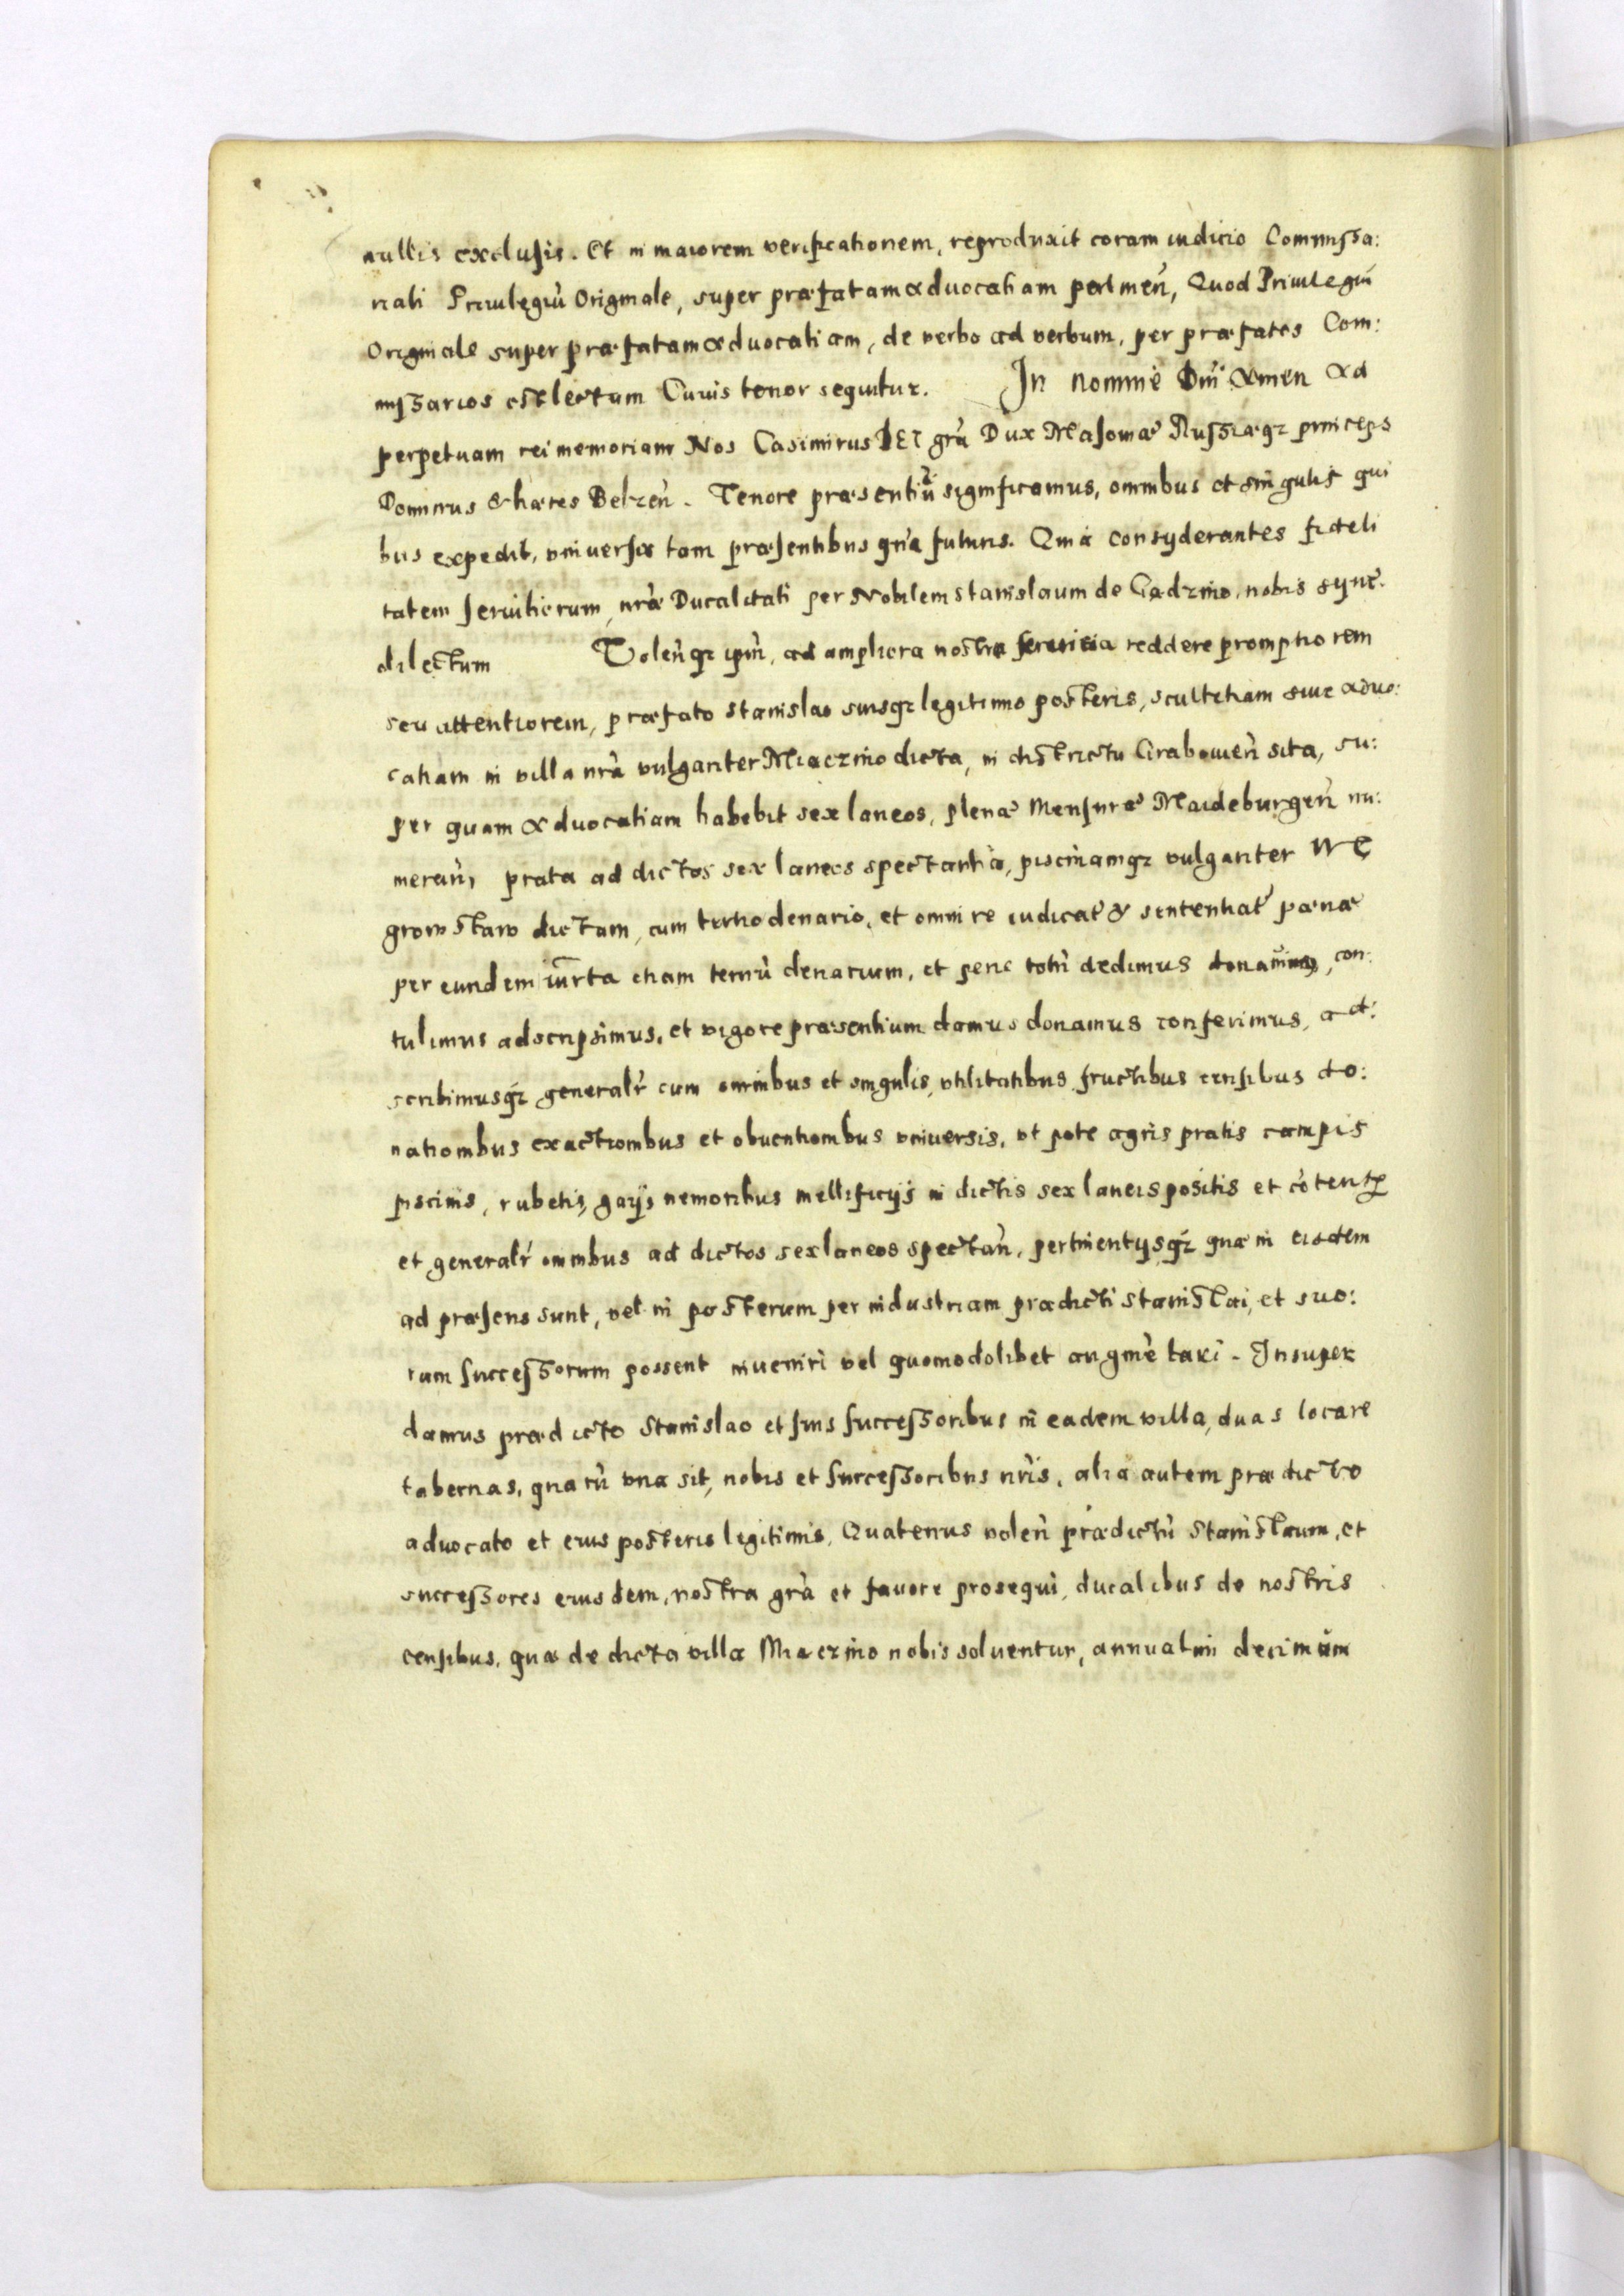 nullis exclusis. Et in maiorem verificationem, reproduxit coram iudicio Commissa:
riali Priuilegiũ Originale, super præfatam aduocatiam pertineñ, Quod Priuilegiũ
Originale super præfatam aduocatiam, de verbo ad verbum, per præfatos Com:
missarios est lectum Cuius tenor sequitur. In nomine Dni Amen Ad
perpetuam rei memoriam Nos Casimirus DEI grã Dux Masouiæ Russiæqz princeps
Dominus & hæres Belzeñ. Tenore præsentiũ significamus, omnibus et singulis qui
bus expedit, vniuersis tam præsentibus q̃ futuris. Quia consyderantes fideli
tatem seruitiorum, nrã Ducalitati per Nobilem Stanislaum de Gadzino, nobis sync.
dilectum Voleñqz ipm̃, ad ampliora nostra seruitia reddere promptiorem
seu attentiorem, præfato Stanislao suisqz legitimo posteris, scultetiam siue aduo:
catiam in villa nrã vulgariter Miaczino dicta, in districtu Graboueñ sita, su:
per quam aduocatiam habebit sex laneos, plenæ Mensuræ Maideburgeñ nu:
merañ, prata ad dictos sex laneos spectantia, piscinamqz vulgariter WE
growstaw dictam, cum tertio denario, et omni re iudicat̃ & sententiat̃ pænæ
per eundem iuxta etiam ternũ denarium, et penẽ totũ dedimus donauimus, con:
tulimus adscripsimus, et vigore præsentium damus donamus conferimus, ad:
scribimusqz generalr̃ cum omnibus et singulis, vtilitatibus fructibus censibus do:
nationibus exactionibus et obuentionibus vniuersis, vt pote agris pratis campis
piscinis, rubetis, gayis nemoribus mellificijs in dictis sex laneis positis et cõtentz
et generalr̃ omnibus ad dictos sex laneos spectañ, pertinentijsqz quæ in eisdem
ad præsens sunt, vel in posterum per industriam prædicti Stanislai, et suo:
rum successorum possent inueniri vel quomodolibet augmẽtari. Insuper
damus prædicto Stanislao et suis successoribus in eadem villa, duas locare
tabernas, quarũ vna sit, nobis et successoribus nr̃is, alia autem prædicto
aduocato et eius posteris legitimis, Quatenus voleñ prædictũ Stanislaum, et
successores eiusdem, nostra grã et fauore prosequi, ducalibus de nostris
censibus, quæ de dicta villa Miaczino nobis soluentur, annuatim decimum